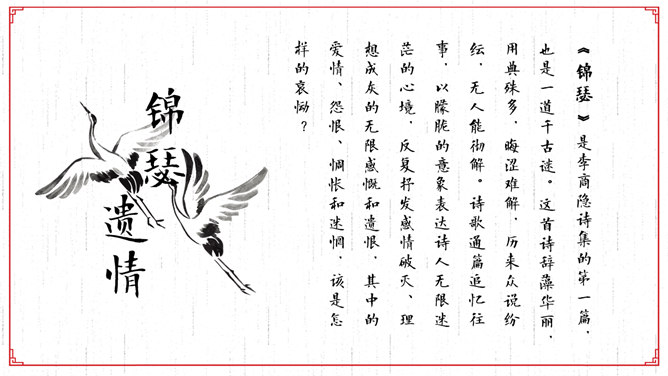 《锦瑟》是李商隐诗集的第一篇，
也是一道千古谜。这首诗辞藻华丽，
用典殊多，晦涩难解，历来众说纷
纭，无人能彻解。诗歌通篇追忆往
事，以朦胧的意象表达诗人无限迷
茫的心境，反复抒发感情破灭、理
想成灰的无限感慨和遗恨，其中的
爱情、怨恨、惆怅和迷惘，该是怎
样的哀恸？
锦瑟遗情